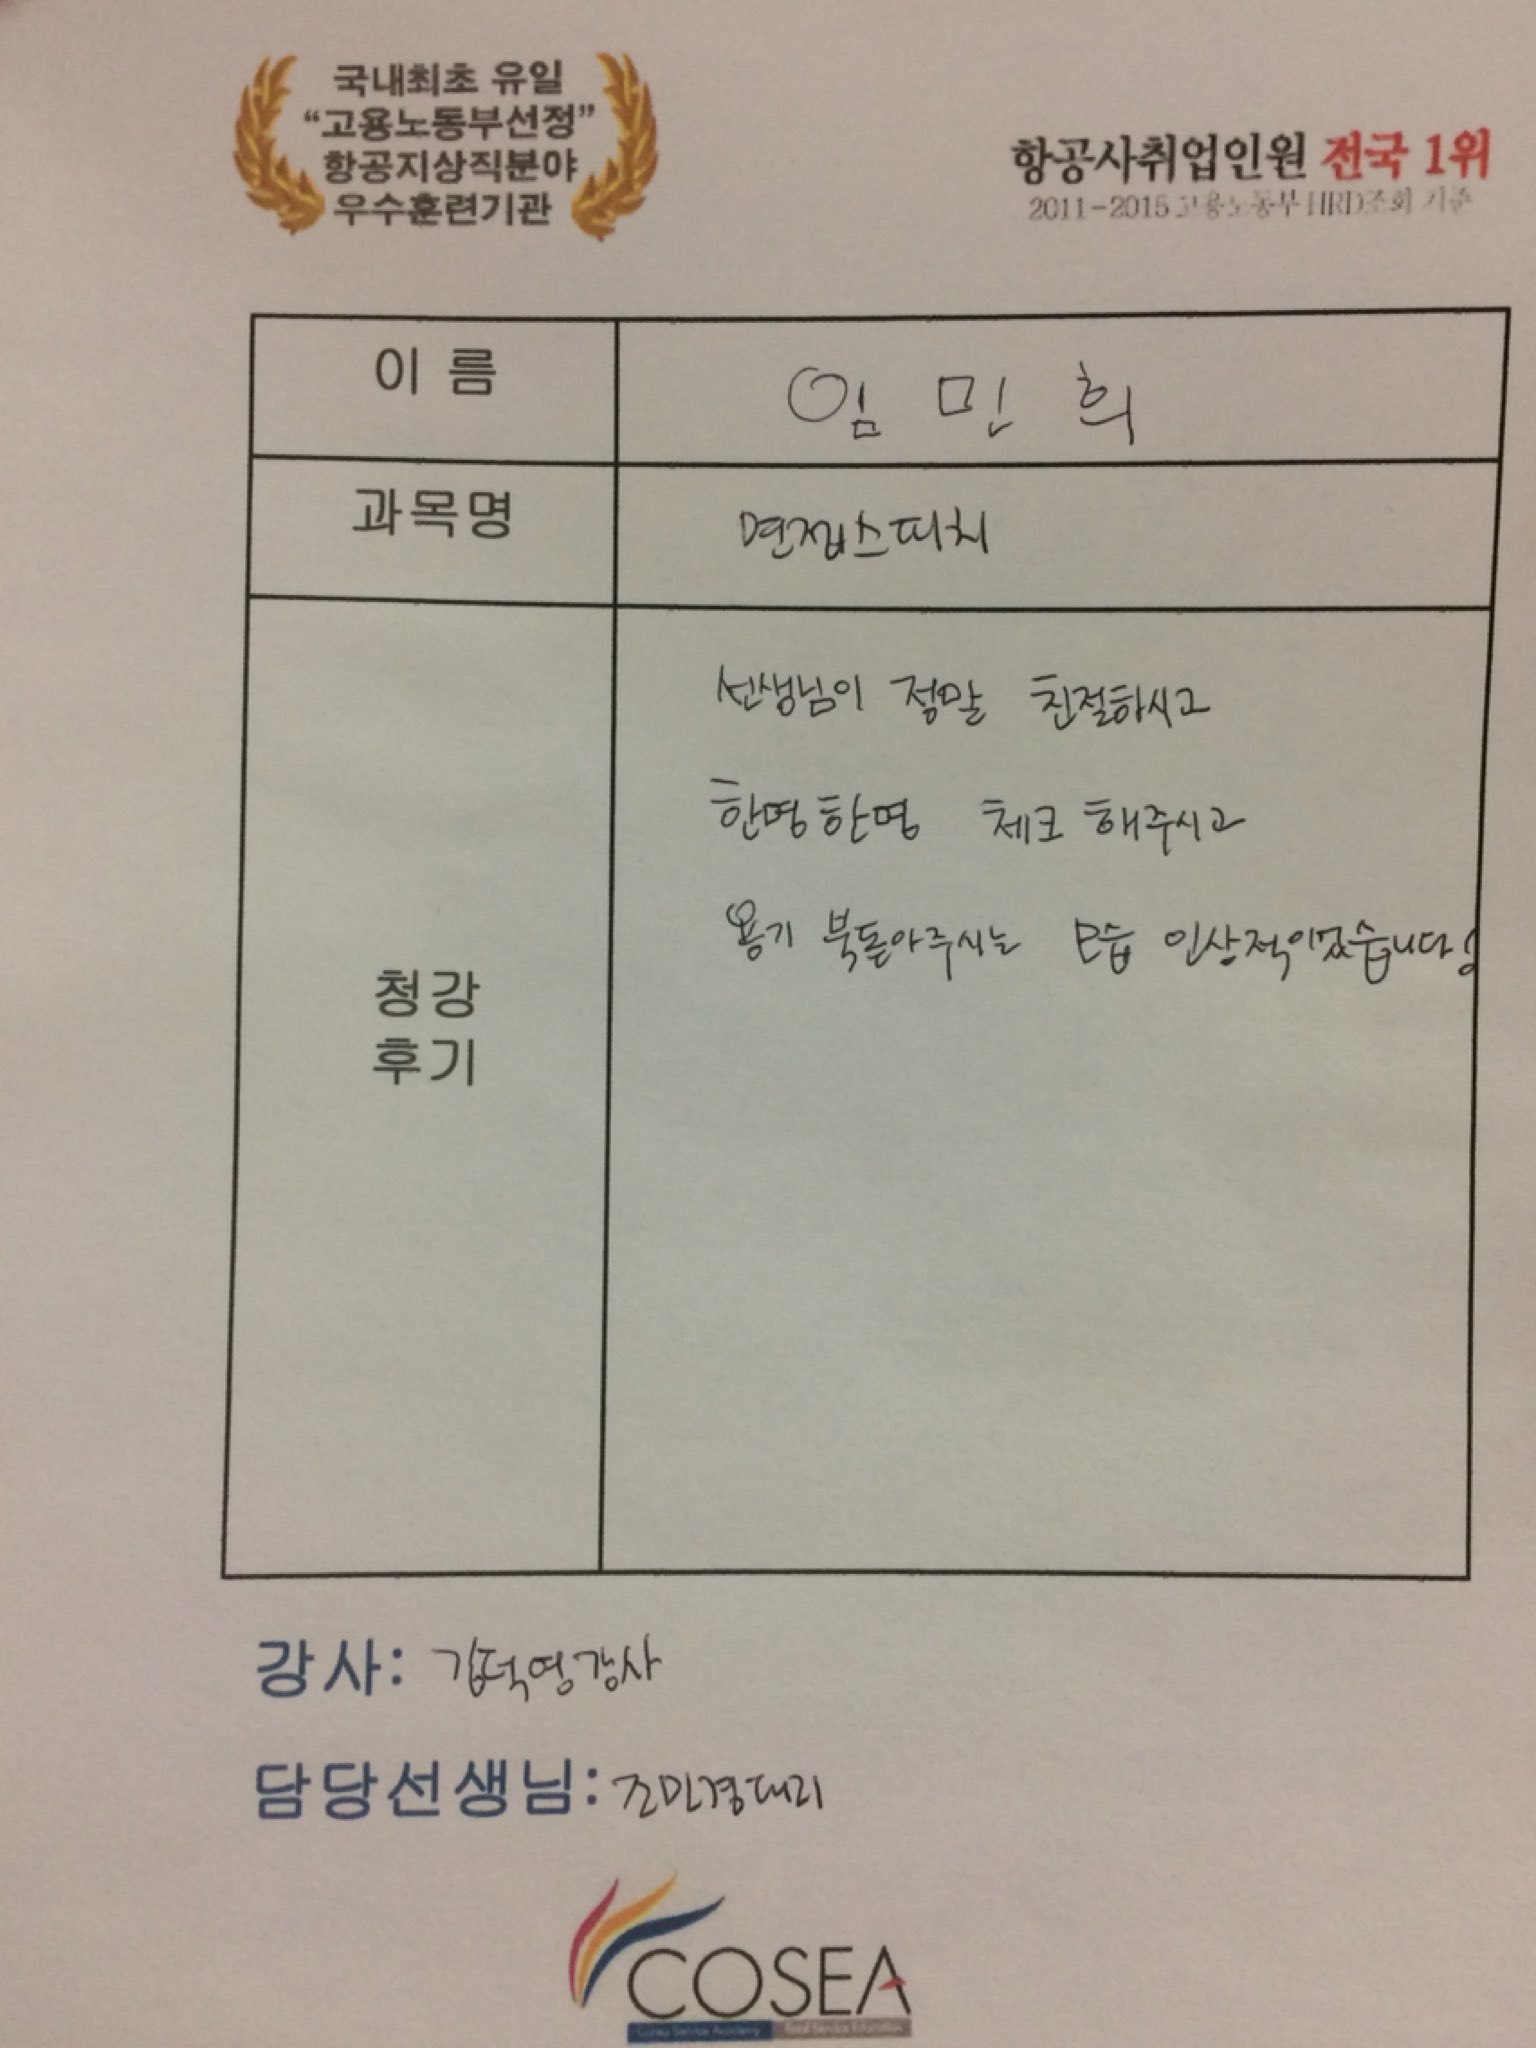 국내최초 유일
“고용노동부선정”
항공지상직분야
우수훈련기관
항공사취업인원 전국 1위
2011-2015 고용노동부 HRD조회 기준
이 름
임 민 희
과목명
면접스피치
선생님이 정말 친절하시고
한명한명 체크 해주시고
용기 북돋아주시는 모습 인상적이었습니다!
청강
후기
강사: 김덕영강사
담당선생님: 조민경대리
COSEA
Corea Service Academy Total Service Education